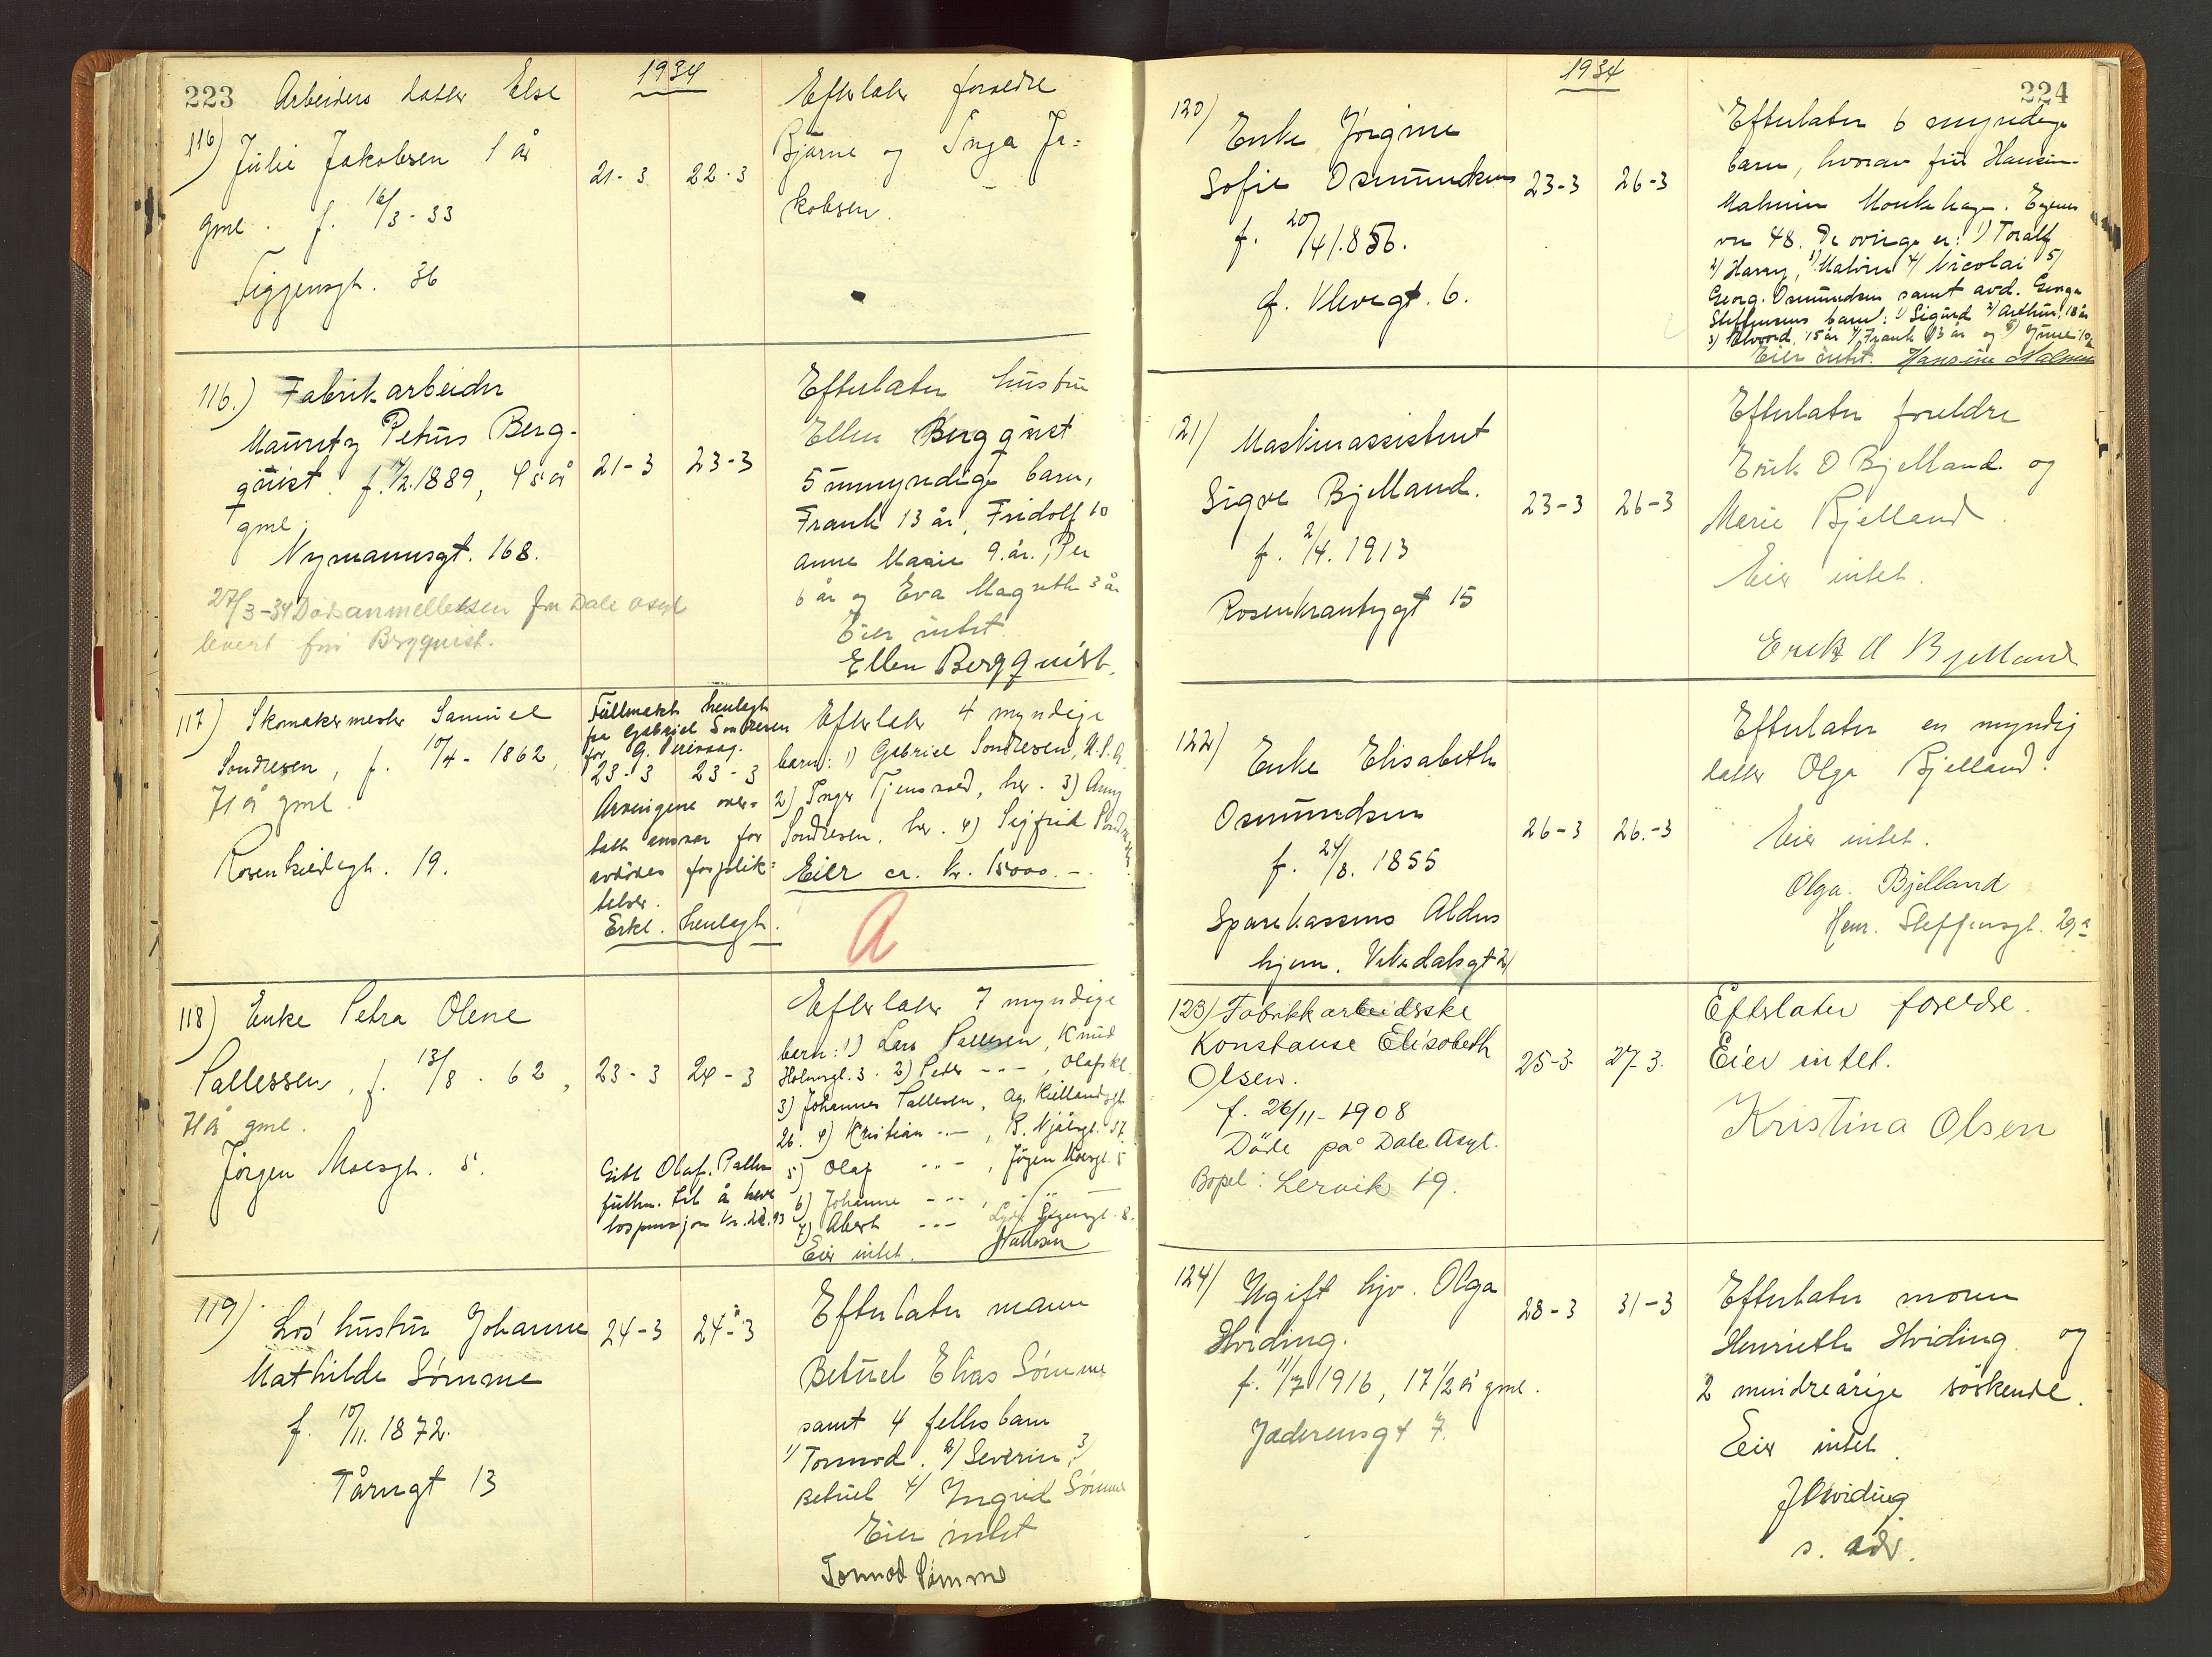 223
1934
116)
Arbeiders datter Else
Julie Jakobsen 1 år
gml. f. 16/3-33
Figgensgt. 36
21-3 22-3
Efterlater foreldre
Bjarne og Inga Ja=
kobsen.
116.) Fabrikarbeider
Mauritz Petrus Berg-
quist. f. 17/2.1889, 45 år
gml.
Nymannsgt. 168.
27/3-34 Dødsanmeldelsen fra Dale asyl
levert fru Bergquist.
21-3 23-3
Efterlater hustru
Ellen Bergquist
5 umyndige barn,
Frank 13 år, Fridolf 10
Anne Marie 9 år., Per
6 år og Eva Magrethe 3 år
Eier intet
Ellen Bergquist.
117) Skomakermester Samuel
Sondresen, f. 10/4-1862,
71 år gml.
Rosenkildegt. 19.
Fullmakt henlagt
fra Gabriel Sondresen
for G.
23-3 23-3
Arvingene over=
tatt ansvar for
avdødes forplik=
telser.
Erkl. henlagt.
Efterlater 4 myndige
barn: 1) Gabriel Sondresen, U.S.A.
2) Inger Tjensvold, her. 3) Anny
Sondresen, her. 4) Sigfrid Sondresen
Eier ca. kr. 15000.-
A
118) Enke Petra Olene
Pallessen, f. 13/8. 62,
71 år gml.
Jörgen Moesgt. 5.
23-3 24-3
Gitt Olaf Pallesen
fullm. til å heve
lospensjon kr. 22.93
Efterlater 7 myndige
barn: 1) Lars Pallesen, Knud
Holmsgt. 3. 2) Peder -"-, Olafskl.
3) Johannes Pallesen, Ag. Kiellandsgt.
26. 4) Kristian -"-, B. Njålsgt. 57.
5) Olaf -"-, Jörgen Moesgt. 5
6) Johanne -"-, "
7) Albert -"- Lyder Sagensgt. 8.
Eier intet. Pallesen
119) Los hustru Johanne
Mathilde Sømme
f. 10/11. 1872.
Tårngt 13
24-3 24-3
Efterlater mann
Betuel Elias Sømme
samt 4 felles barn
1) Tormod. 2) Severin, 3)
Betuel 4) Ingrid Sømme
Eier intet
Tormod Sømme
224
1934
120)
Enke Jörgine
Sofie Osmundsen
f. 20/4 1.856.
g. Vlevegt. 6.
23-3 26-3
Efterlater 6 myndige
barn, hvorav fru Hansine
Malmin Munkehagen. Egenes
vn 48. De øvrige er: 1) Toralf
2) Harry, 3) Malvin 4) Nicolai 5)
Georg. Osmundsen samt avd. Georga
Steffensens barn: 1) Sigurd 2) Arthur 18 år
3) Edvard, 15 år 4) Frank 13 år og 5) Gunne 10
Eier intet. Hansine Malmin
121) Maskinassistent
Sigve Bjelland.
f. 2/4. 1913
Rosenkrantzgt 15
23-3 26-3
Efterlater foreldre
Erik O Bjelland. og
Marie Bjelland.
Eier intet.
Erik O Bjelland
122)
Enke Elisabeth
Osmundsen
f. 24/8. 1855
Sparekassens Alders
hjem. Vikedalsgt 2)
26-3 26.-3
Efterlater en myndig
datter Olga Bjelland.
Eier intet.
Olga. Bjelland
Henr. Steffensgt. 29a
123) Fabrikkarbeiderske
Konstanse Elisabeth
Olsen.
f. 26/11-1908
Döde på Dale Asyl.
Bopel: Lervik 19.
25-3. 27-3.
Efterlater foreldre.
Eier intet.
Kristina Olsen
124) Ugift hjv. Olga
Hviding.
f. 11/7 1916, 17 1/2 år gml.
Jæderensgt 7.
28-3 31-3
Efterlater moren
Henriette Hviding og
2 mindreårige søskende.
Eier intet.
J Hviding
s. adr.